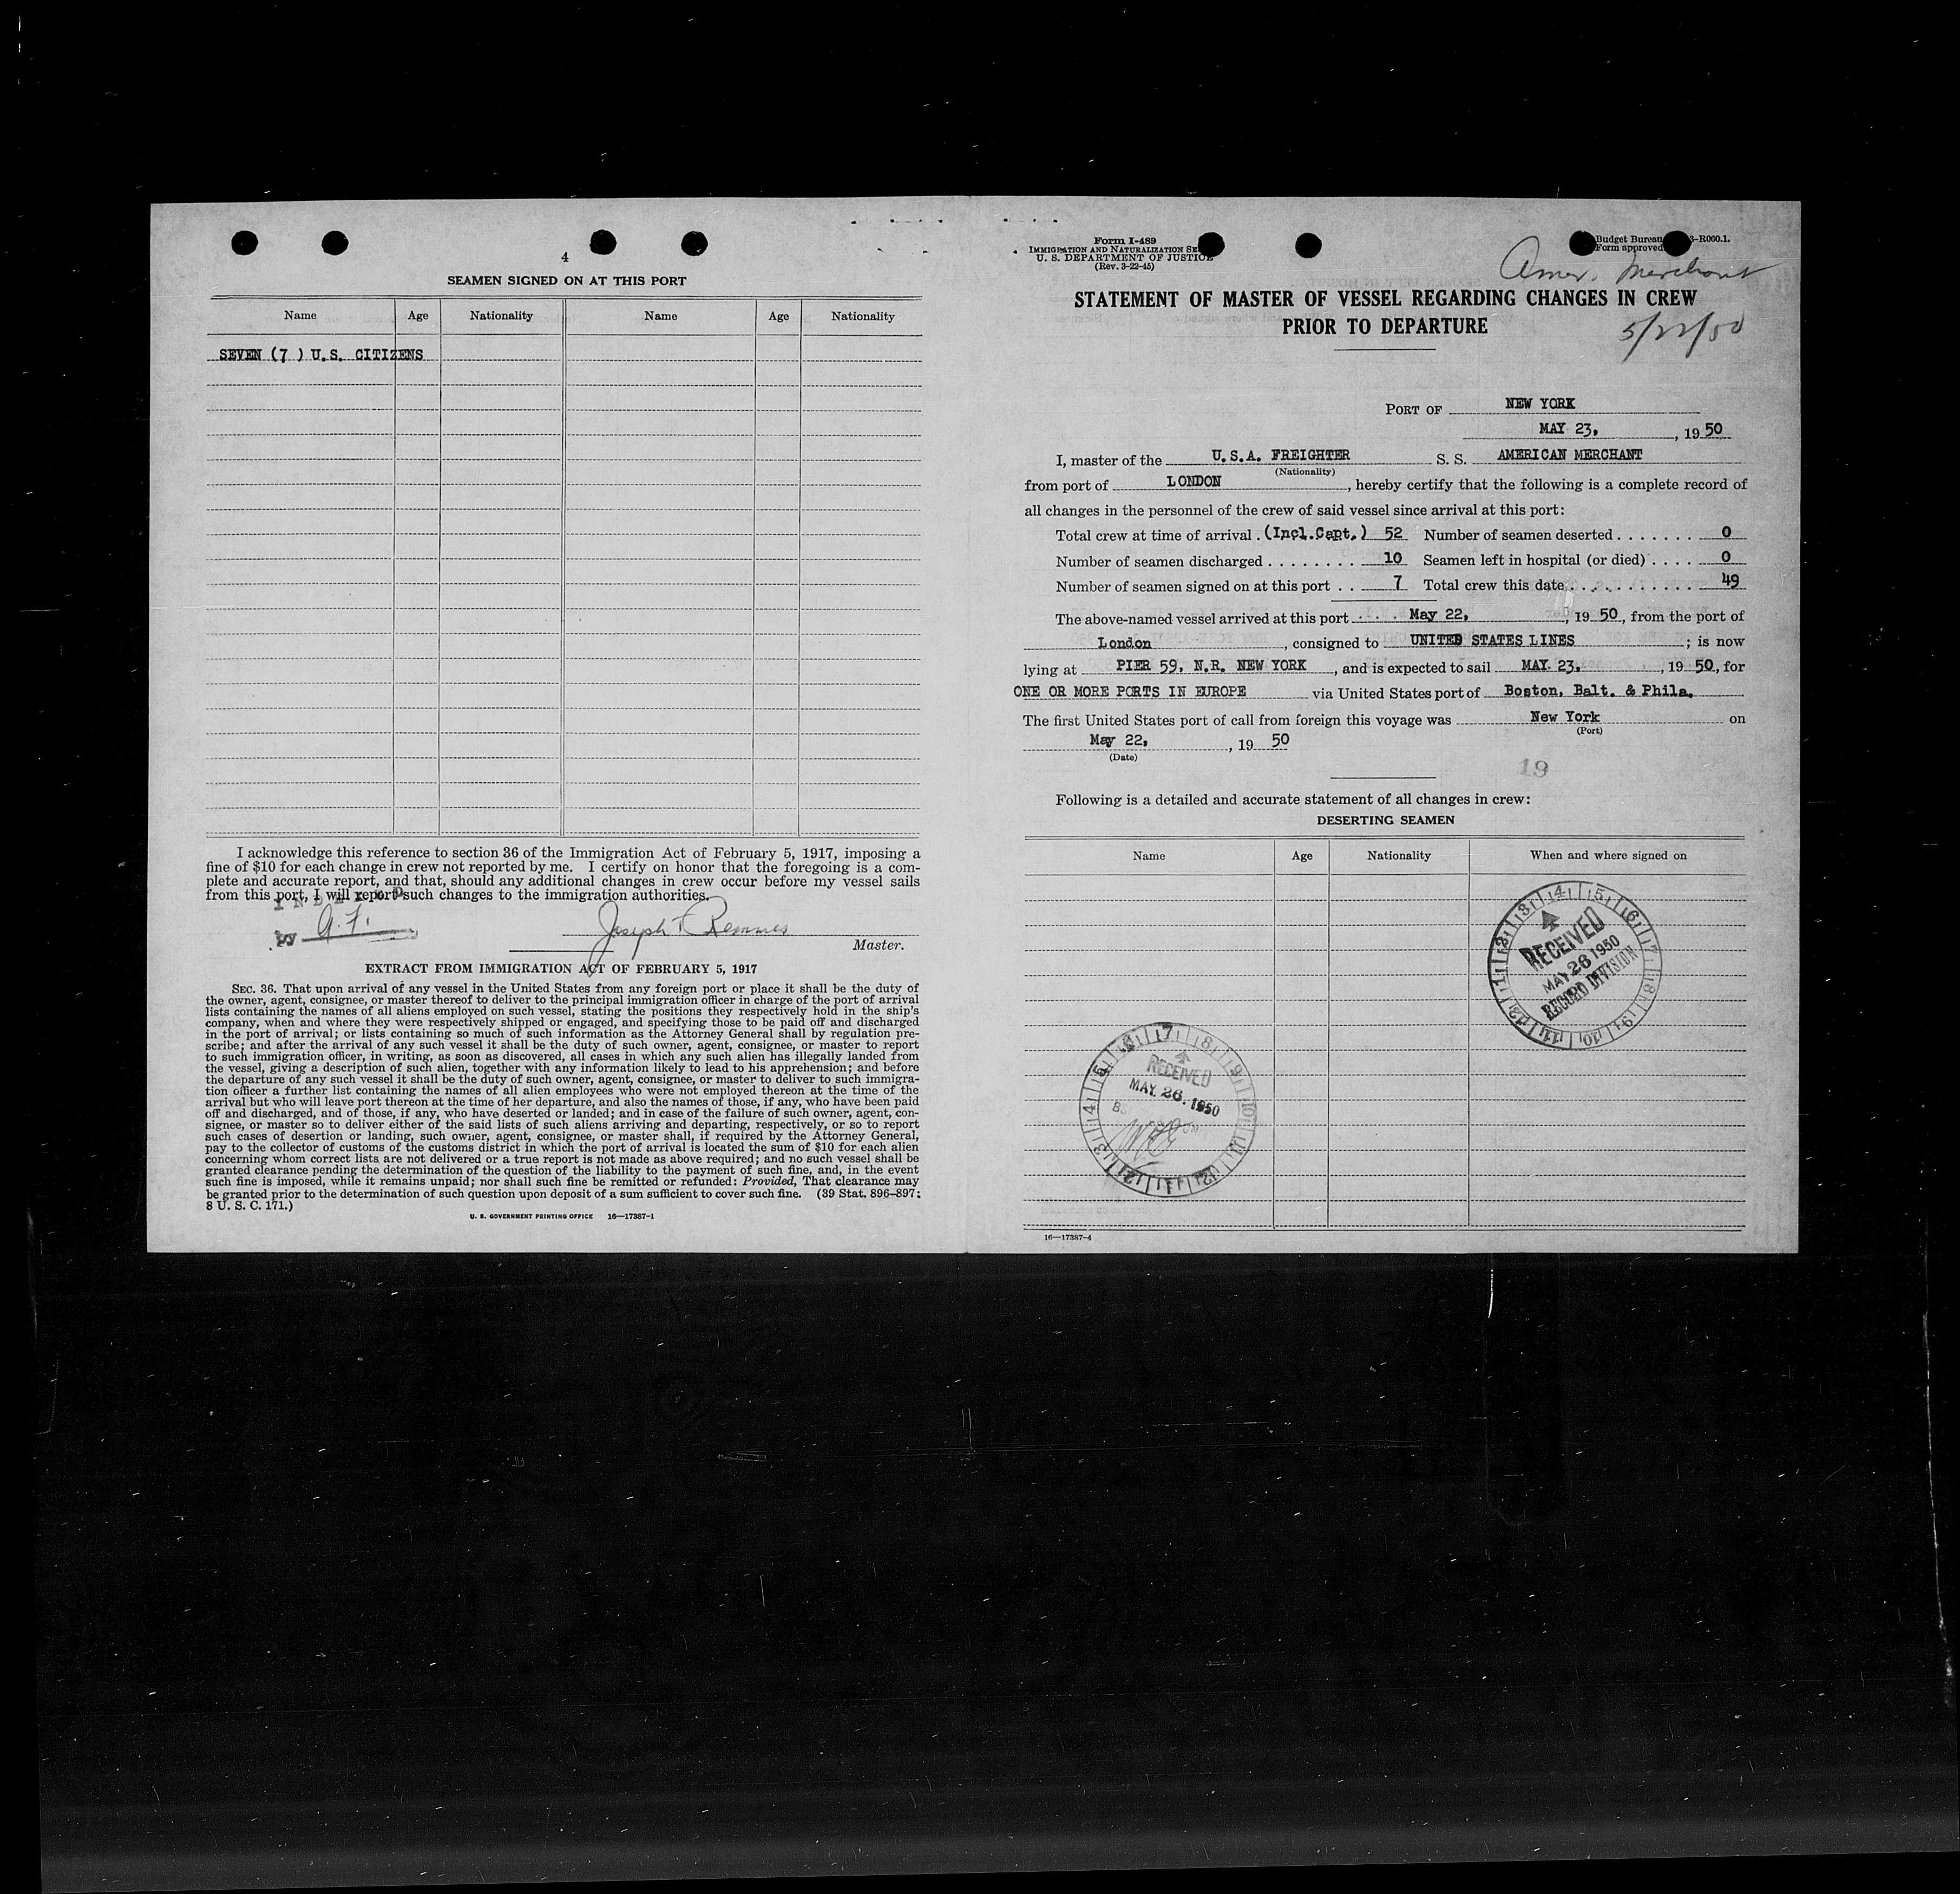 4
SEAMEN SIGNED ON AT THIS PORT
Name Age Nationality Name Age Nationality
SEVEN (7 ) U.S. CITIZENS
I acknowledge this reference to section 36 of the Immigration Act of February 5, 1917, imposing a
fine of $10 for each change in crew not reported by me. I certify on honor that the foregoing is a com-
plete and accurate report, and that, should any additional changes in crew occur before my vessel sails
from this port, I will report such changes to the immigration authorities.
by G.F.
Joseph
Master.
EXTRACT FROM IMMIGRATION ACT OF FEBRUARY 5, 1917
SEC. 36. That upon arrival of any vessel in the United States from any foreign port or place it shall be the duty of
the owner, agent, consignee, or master thereof to deliver to the principal immigration officer in charge of the port of arrival
lists containing the names of all aliens employed on such vessel, stating the positions they respectively hold in the ship's
company, when and where they were respectively shipped or engaged, and specifying those to be paid off and discharged
in the port of arrival; or lists containing so much of such information as the Attorney General shall by regulation pre-
scribe; and after the arrival of any such vessel it shall be the duty of such owner, agent, consignee, or master to report
to such immigration officer, in writing, as soon as discovered, all cases in which any such alien has illegally landed from
the vessel, giving a description of such alien, together with any information likely to lead to his apprehension; and before
the departure of any such vessel it shall be the duty of such owner, agent, consignee, or master to deliver to such immigra-
tion officer a further list containing the names of all alien employees who were not employed thereon at the time of the
arrival but who will leave port thereon at the time of her departure, and also the names of those, if any, who have been paid
off and discharged, and of those, if any, who have deserted or landed; and in case of the failure of such owner, agent, con-
signee, or master so to deliver either of the said lists of such aliens arriving and departing, respectively, or so to report
such cases of desertion or landing, such owner, agent, consignee, or master shall, if required by the Attorney General,
pay to the collector of customs of the customs district in which the port of arrival is located the sum of $10 for each alien
concerning whom correct lists are not delivered or a true report is not made as above required; and no such vessel shall be
granted clearance pending the determination of the question of the liability to the payment of such fine, and, in the event
such fine is imposed, while it remains unpaid; nor shall such fine be remitted or refunded: Provided, That clearance may
be granted prior to the determination of such question upon deposit of a sum sufficient to cover such fine. (39 Stat. 896–897;
8 U. S. C. 171.)
U. S. GOVERNMENT PRINTING OFFICE 16—17387-1
Form I-489
IMMIGRATION AND NATURALIZATION SE
U. S. DEPARTMENT OF JUSTICE
(Rev. 3-22-45)
Budget Bureau 3-R060.1.
Form approved
Amer. Merchant
STATEMENT OF MASTER OF VESSEL REGARDING CHANGES IN CREW
PRIOR TO DEPARTURE
5/22/50
PORT OF NEW YORK
MAY 23, , 19 50
I, master of the U.S.A. FREIGHTER S. S. AMERICAN MERCHANT
(Nationality)
from port of LONDON , hereby certify that the following is a complete record of
all changes in the personnel of the crew of said vessel since arrival at this port:
Total crew at time of arrival . (Incl.Capt.) 52 Number of seamen deserted . . . . . . . 0
Number of seamen discharged . . . . . . . . 10 Seamen left in hospital (or died) . . . . 0
Number of seamen signed on at this port . . 7 Total crew this date . . . . . . . . . . . 49
The above-named vessel arrived at this port . . . . May 22, , 19 50, from the port of
London , consigned to UNITED STATES LINES ; is now
lying at PIER 59, N.R. NEW YORK , and is expected to sail MAY 23, , 19 50, for
ONE OR MORE PORTS IN EUROPE via United States port of Boston, Balt. & Phila.
The first United States port of call from foreign this voyage was New York on
(Port)
May 22, , 19 50
(Date)
19
Following is a detailed and accurate statement of all changes in crew:
DESERTING SEAMEN
Name Age Nationality When and where signed on
RECEIVED
MAY 26 1950
RECORD DIVISION
RECEIVED
MAY. 26. 1950
16—17387-4